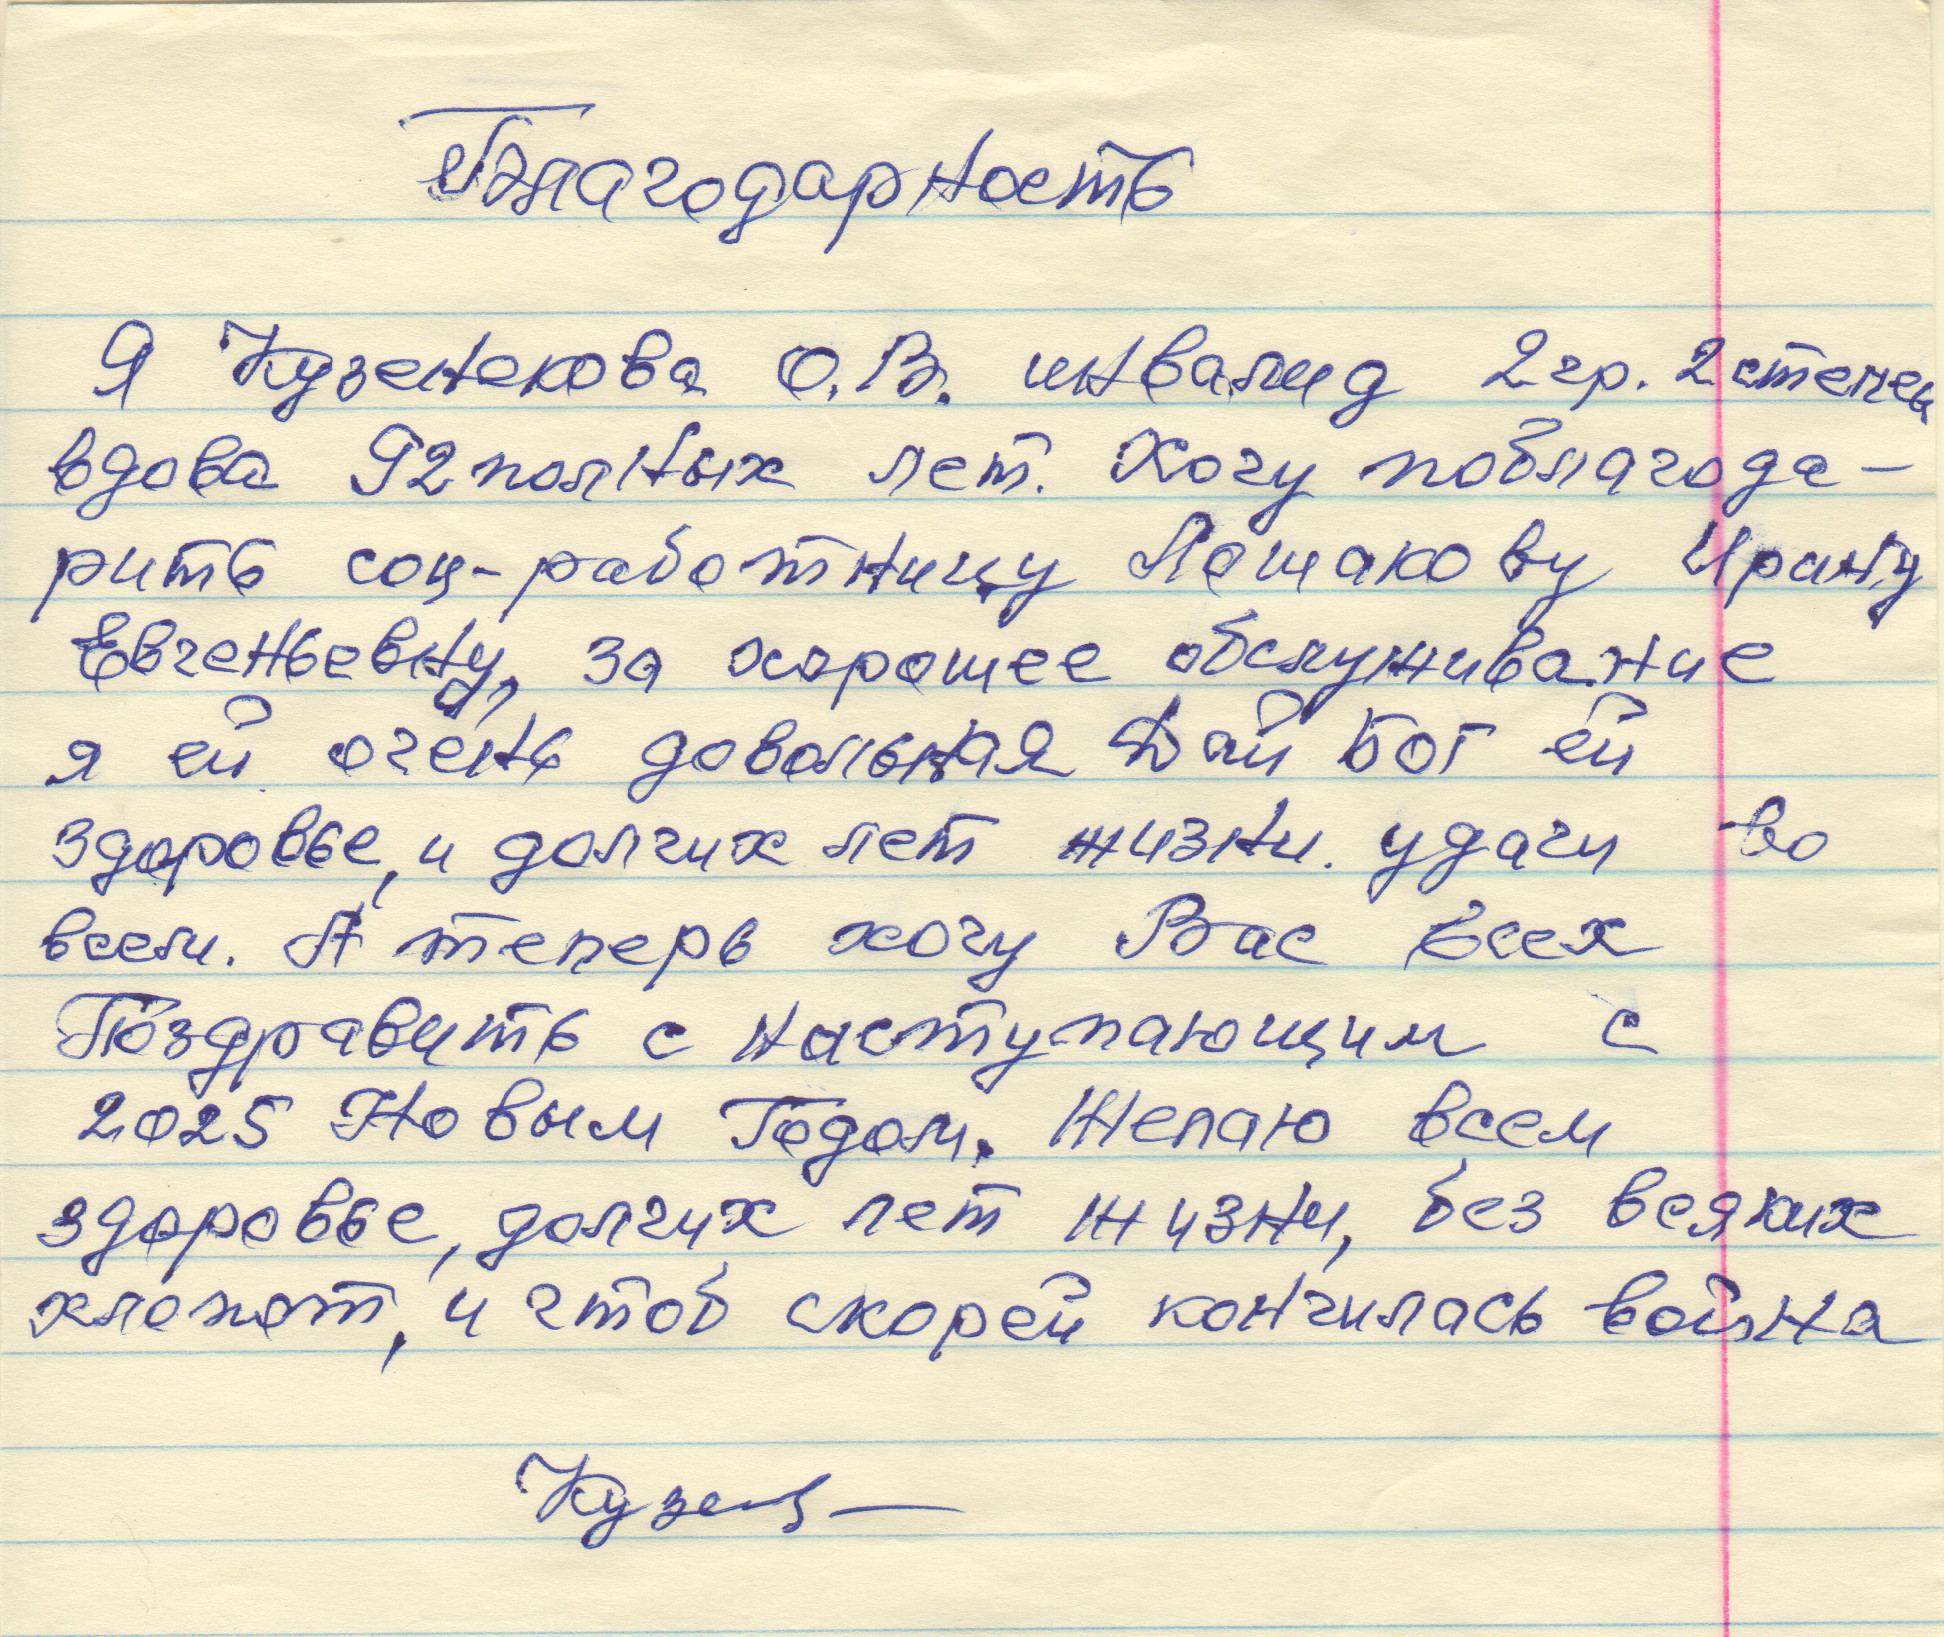 Благодарность
Я Кузенекова О.В. инвалид 2 гр. 2 степен
вдова 92 полных лет. Хочу поблагода-
рить соц-работницу Лошакову Ирину
Евгеньевну, за хорошее обслуживание
я ей очень довольная Дай Бог ей
здоровье, и долгих лет жизни. удачи во
всем. А теперь хочу Вас всех
Поздравить с наступающим с
2025 Новым Годом. Желаю всем
здоровье, долгих лет жизни, без всяких
хлопот, и чтоб скорей кончилась война